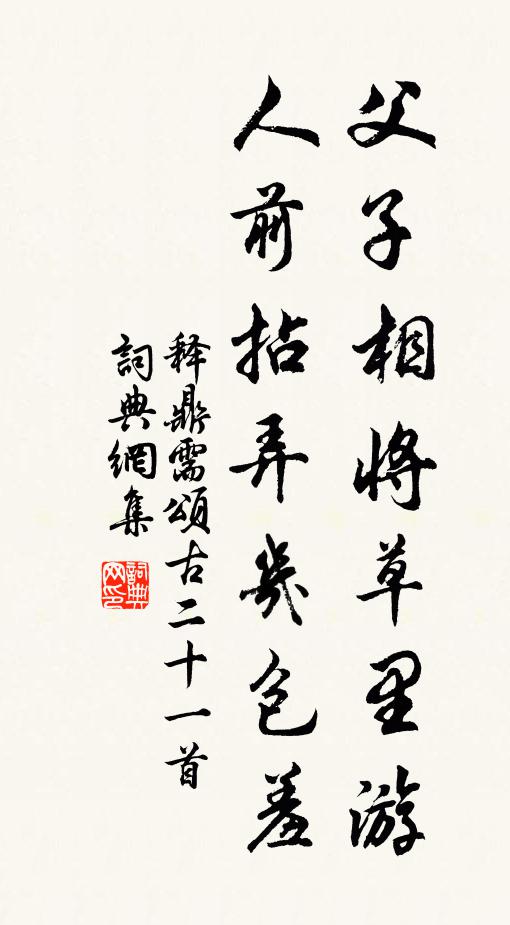 父子相将草里游
人前拈弄几包羞
释鼎需颂古二十一首
詞典網集
詞典网印